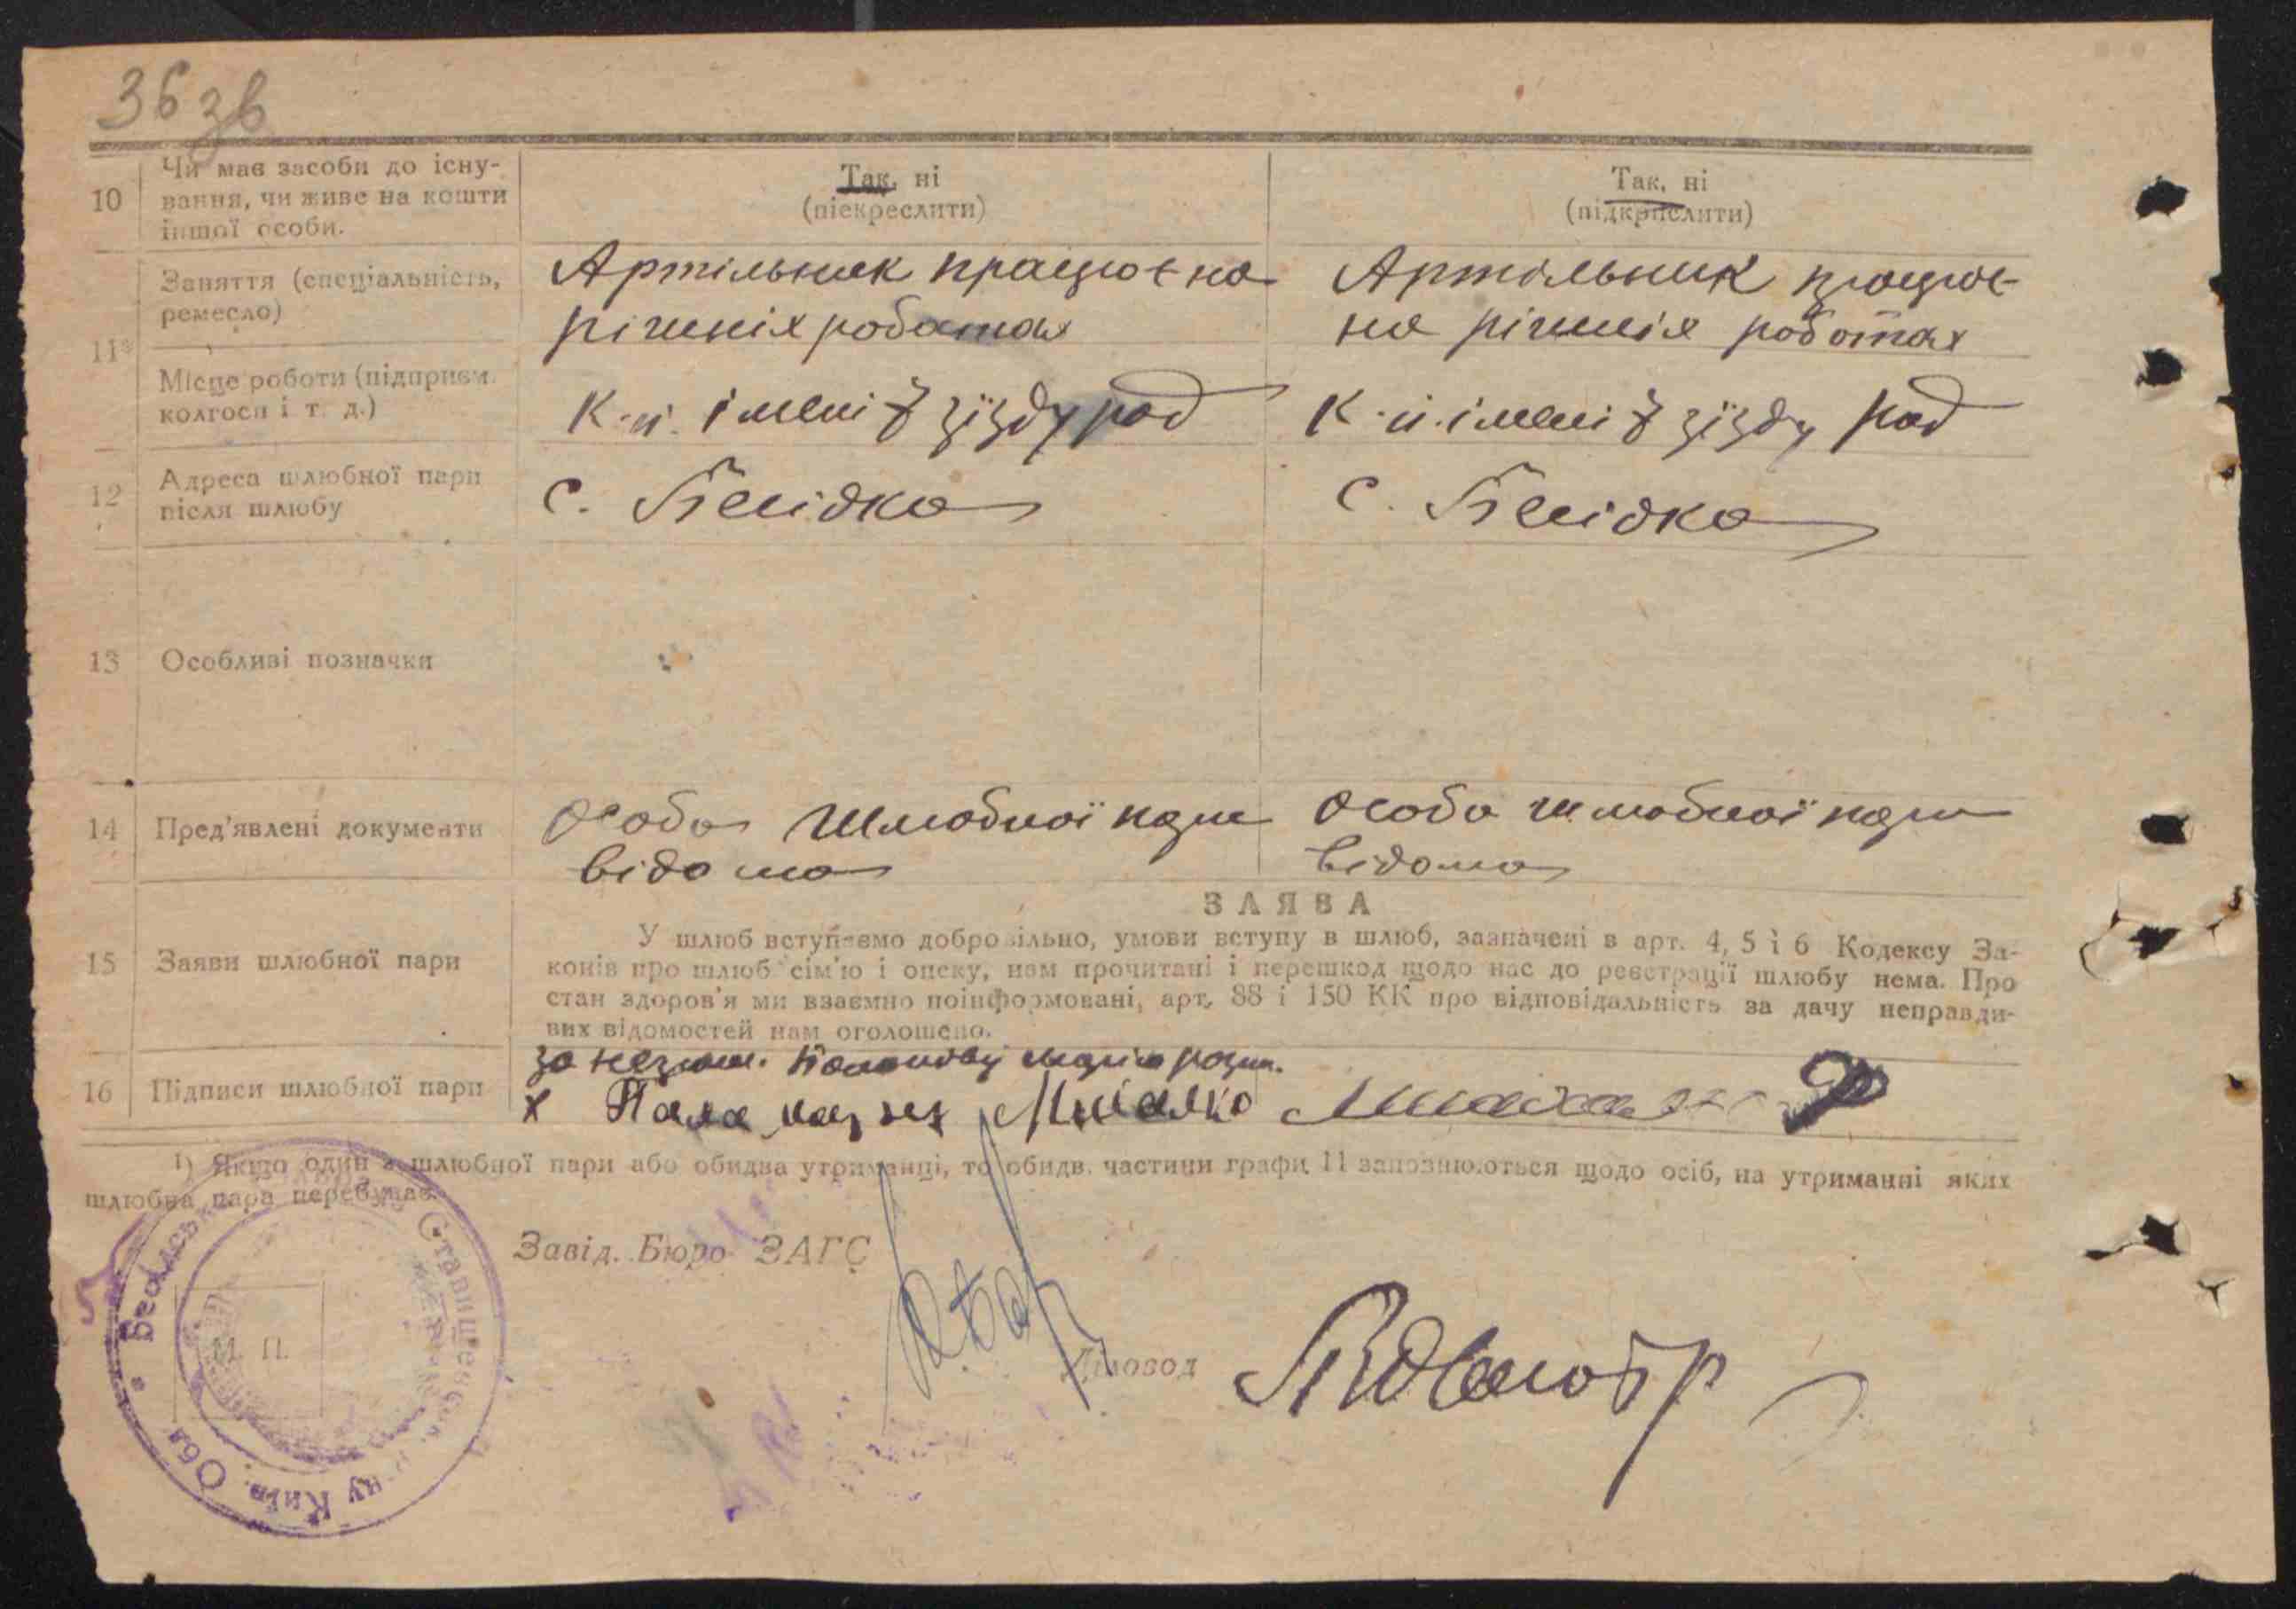 36 зв
10
Чи має засоби до існу-
вання, чи живе на кошти
іншої особи.
Так, ні
(піекреслити)
Так, ні
(підкрпслити)
11
Заняття (спеціальність,
ремесло)
Артільник працює на
ріжніх роботах
Артільник працює
на ріжніх роботах
Місце роботи (підприєм.
колгосп і т. д.)
к-п. імені 7 зїзду рад
к-п. імені 7 зїзду рад
12
Адреса шлюбної пари
після шлюбу
с.
с.
13 Особливі позначки
14 Пред'явлені документи
особа шлюбної пари
відома
особа шлюбної пари
відома
ЗАЯВА
15 Заяви шлюбної пари
У шлюб вступаємо добровільно, умови вступу в шлюб, зазначені в арт. 4, 5 і 6 Кодексу За-
конів про шлюб сім'ю і опеку, нам прочитані і перешкод щодо нас до реєстрації шлюбу нема. Про
стан здоров'я ми взаємно поінформовані, арт. 88 і 150 КК про відповідальність за дачу неправди-
вих відомостей нам оголошено.
16 Підписи шлюбної пари
за
х
1) Якщо один з шлюбної пари або обидва утриманці, то обидв. частини графи 11 заповнюються щодо осіб, на утриманні яких
шлюбна пара перебуває.
Завід. Бюро ЗАГС
М. П.
Діловод
Київ. Обл.